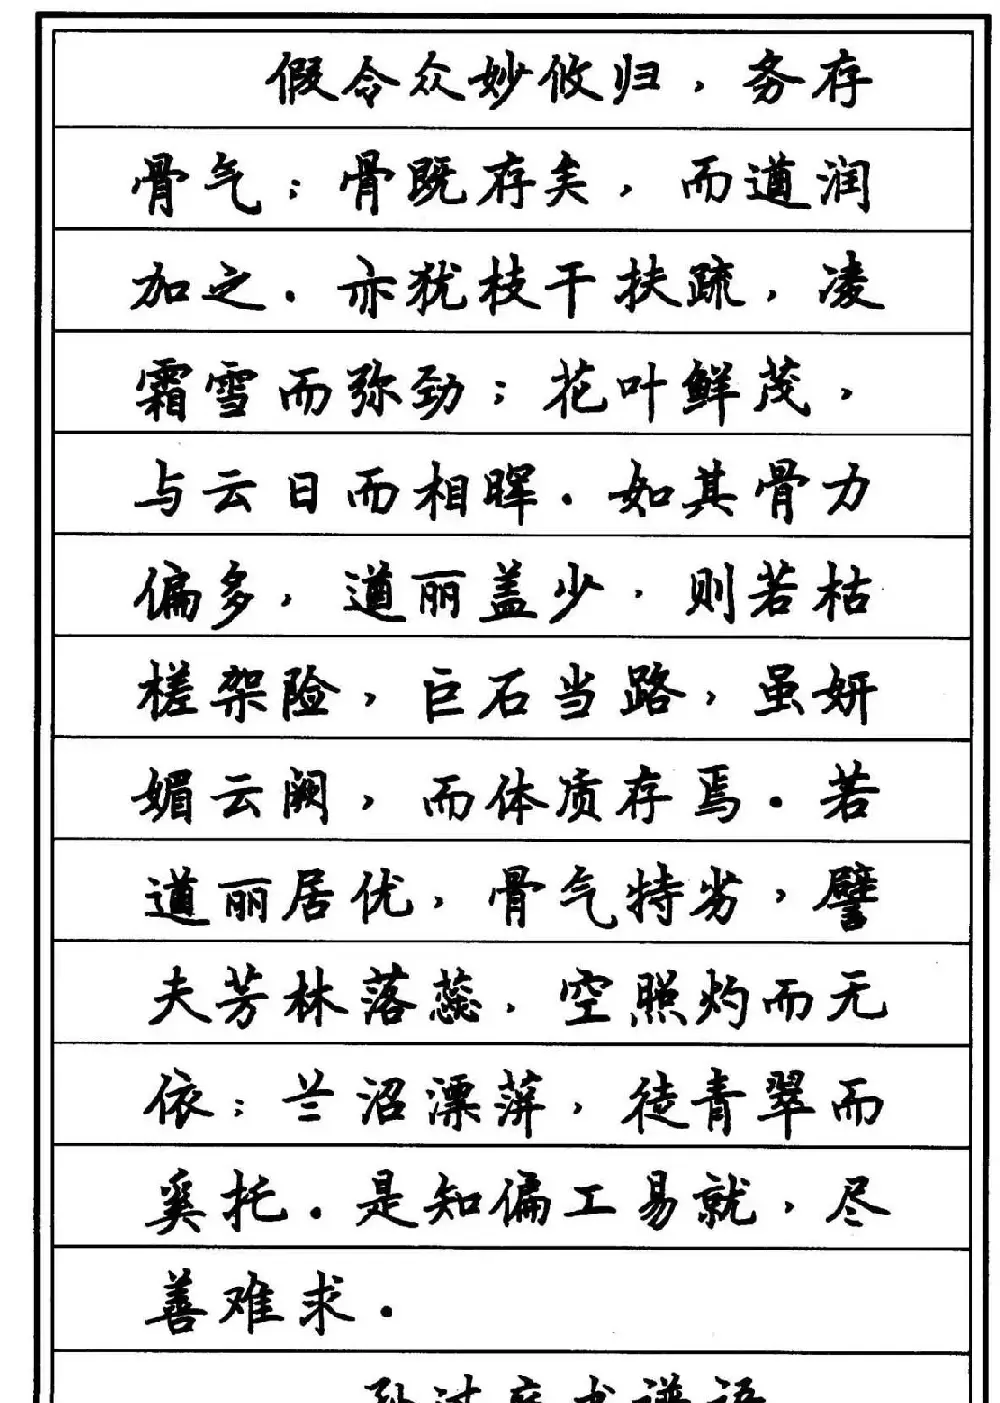 假令众妙攸归，务存
骨气；骨既存矣，而遒润
加之．亦犹枝干扶疏，凌
霜雪而弥劲；花叶鲜茂，
与云日而相晖．如其骨力
偏多，遒丽盖少，则若枯
槎架险，巨石当路，虽妍
媚云阙，而体质存焉．若
遒丽居优，骨气特劣，譬
夫芳林落蕊，空照灼而无
依；兰沼漂蓱，徒青翠而
奚托．是知偏工易就，尽
善难求．
孙过庭书谱语